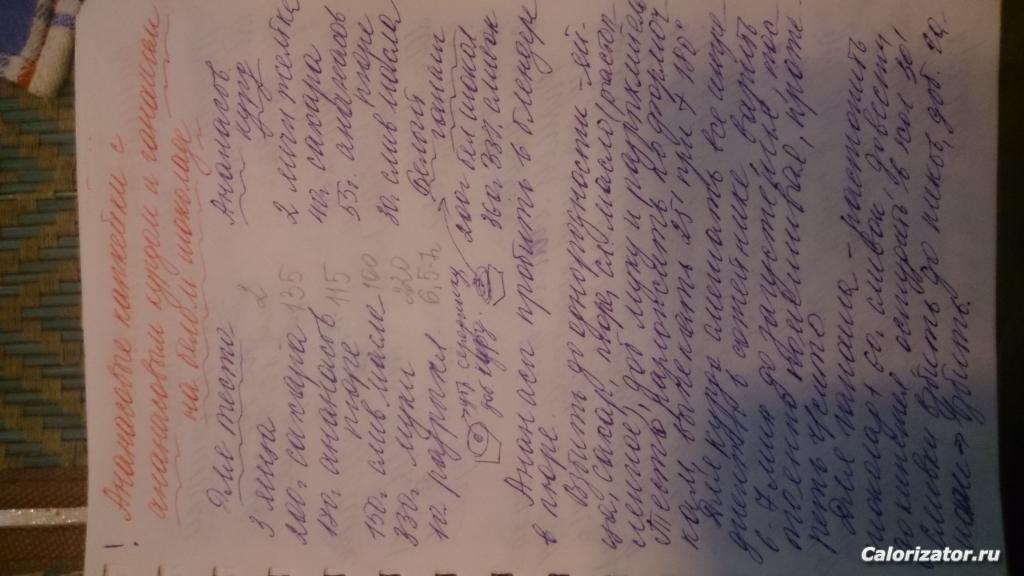 ! Ананасовые капкейки с
ананасовым курдом и ганашем
на белом шоколаде
Для теста
3 яйца 2
200г. сахара 135
170г. ананасов 115
пюре
150г. слив масла 100
330г. муки 220
10г. разрыхл 6,5 г
Ананасов.
курд
2 яйца
40г. сахара
55г. ананасов
пюре
30 слив масла
Белый
ганаш
200г бел шокол
360г 33% сливки
выр середину
доб курд.
Ананасы пробить в блендере
в пюре.
Взбить до однородности яй-
ца, сахар, пюре, сл масло/растоп-
ленное/, доб муку и разрыхлитель
Тесто разложить по формоч-
кам, выпекать 25' при t 180°
Для курда смешать все ингр
диенты в сотейнике, варить
5-7 мин до загустения, пос
тоянно помешивая, проте
реть ч/сито
Для ганаша - растопить
шоколад + 60г сливок довести
до кипения, остудить, в хол 30',
сливки взбить до пиков, доб. га
наш → взбить.
Calorizator.ru